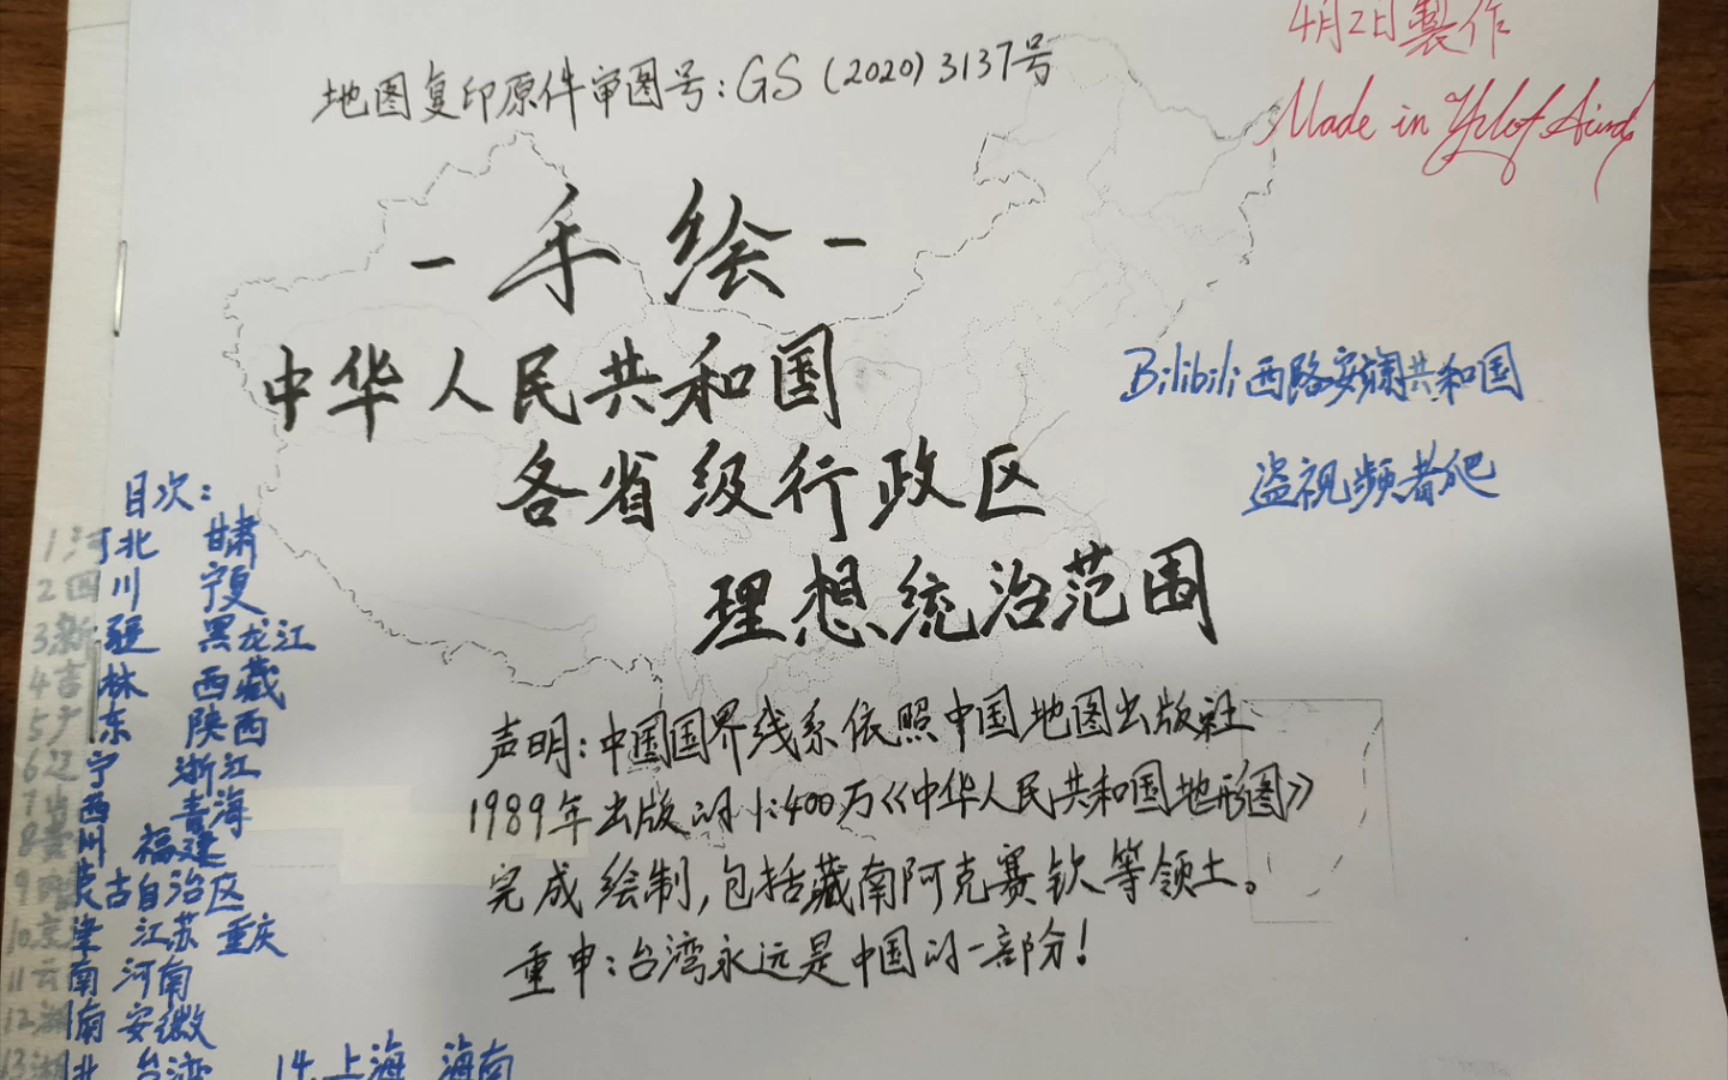 4月2日製作
地图复印原件审图号:GS(2020)3137号
Made in
-手绘-
中华人民共和国
各省级行政区
理想统治范围
Bilibili西路安斓共和国
盗视频者爬
目次:
1河北 甘肃
2四川 宁夏
3新疆 黑龙江
4吉林 西藏
5广东 陕西
6辽宁 浙江
7山西 青海
8贵州 福建
9内蒙古自治区
10京津 江苏 重庆
11云南 河南
12湖南 安徽
13湖北 台湾 14.上海 海南
声明:中国国界线系依照中国地图出版社
1989年出版的1:400万《中华人民共和国地形图》
完成绘制,包括藏南阿克赛钦等领土。
重申:台湾永远是中国的一部分!